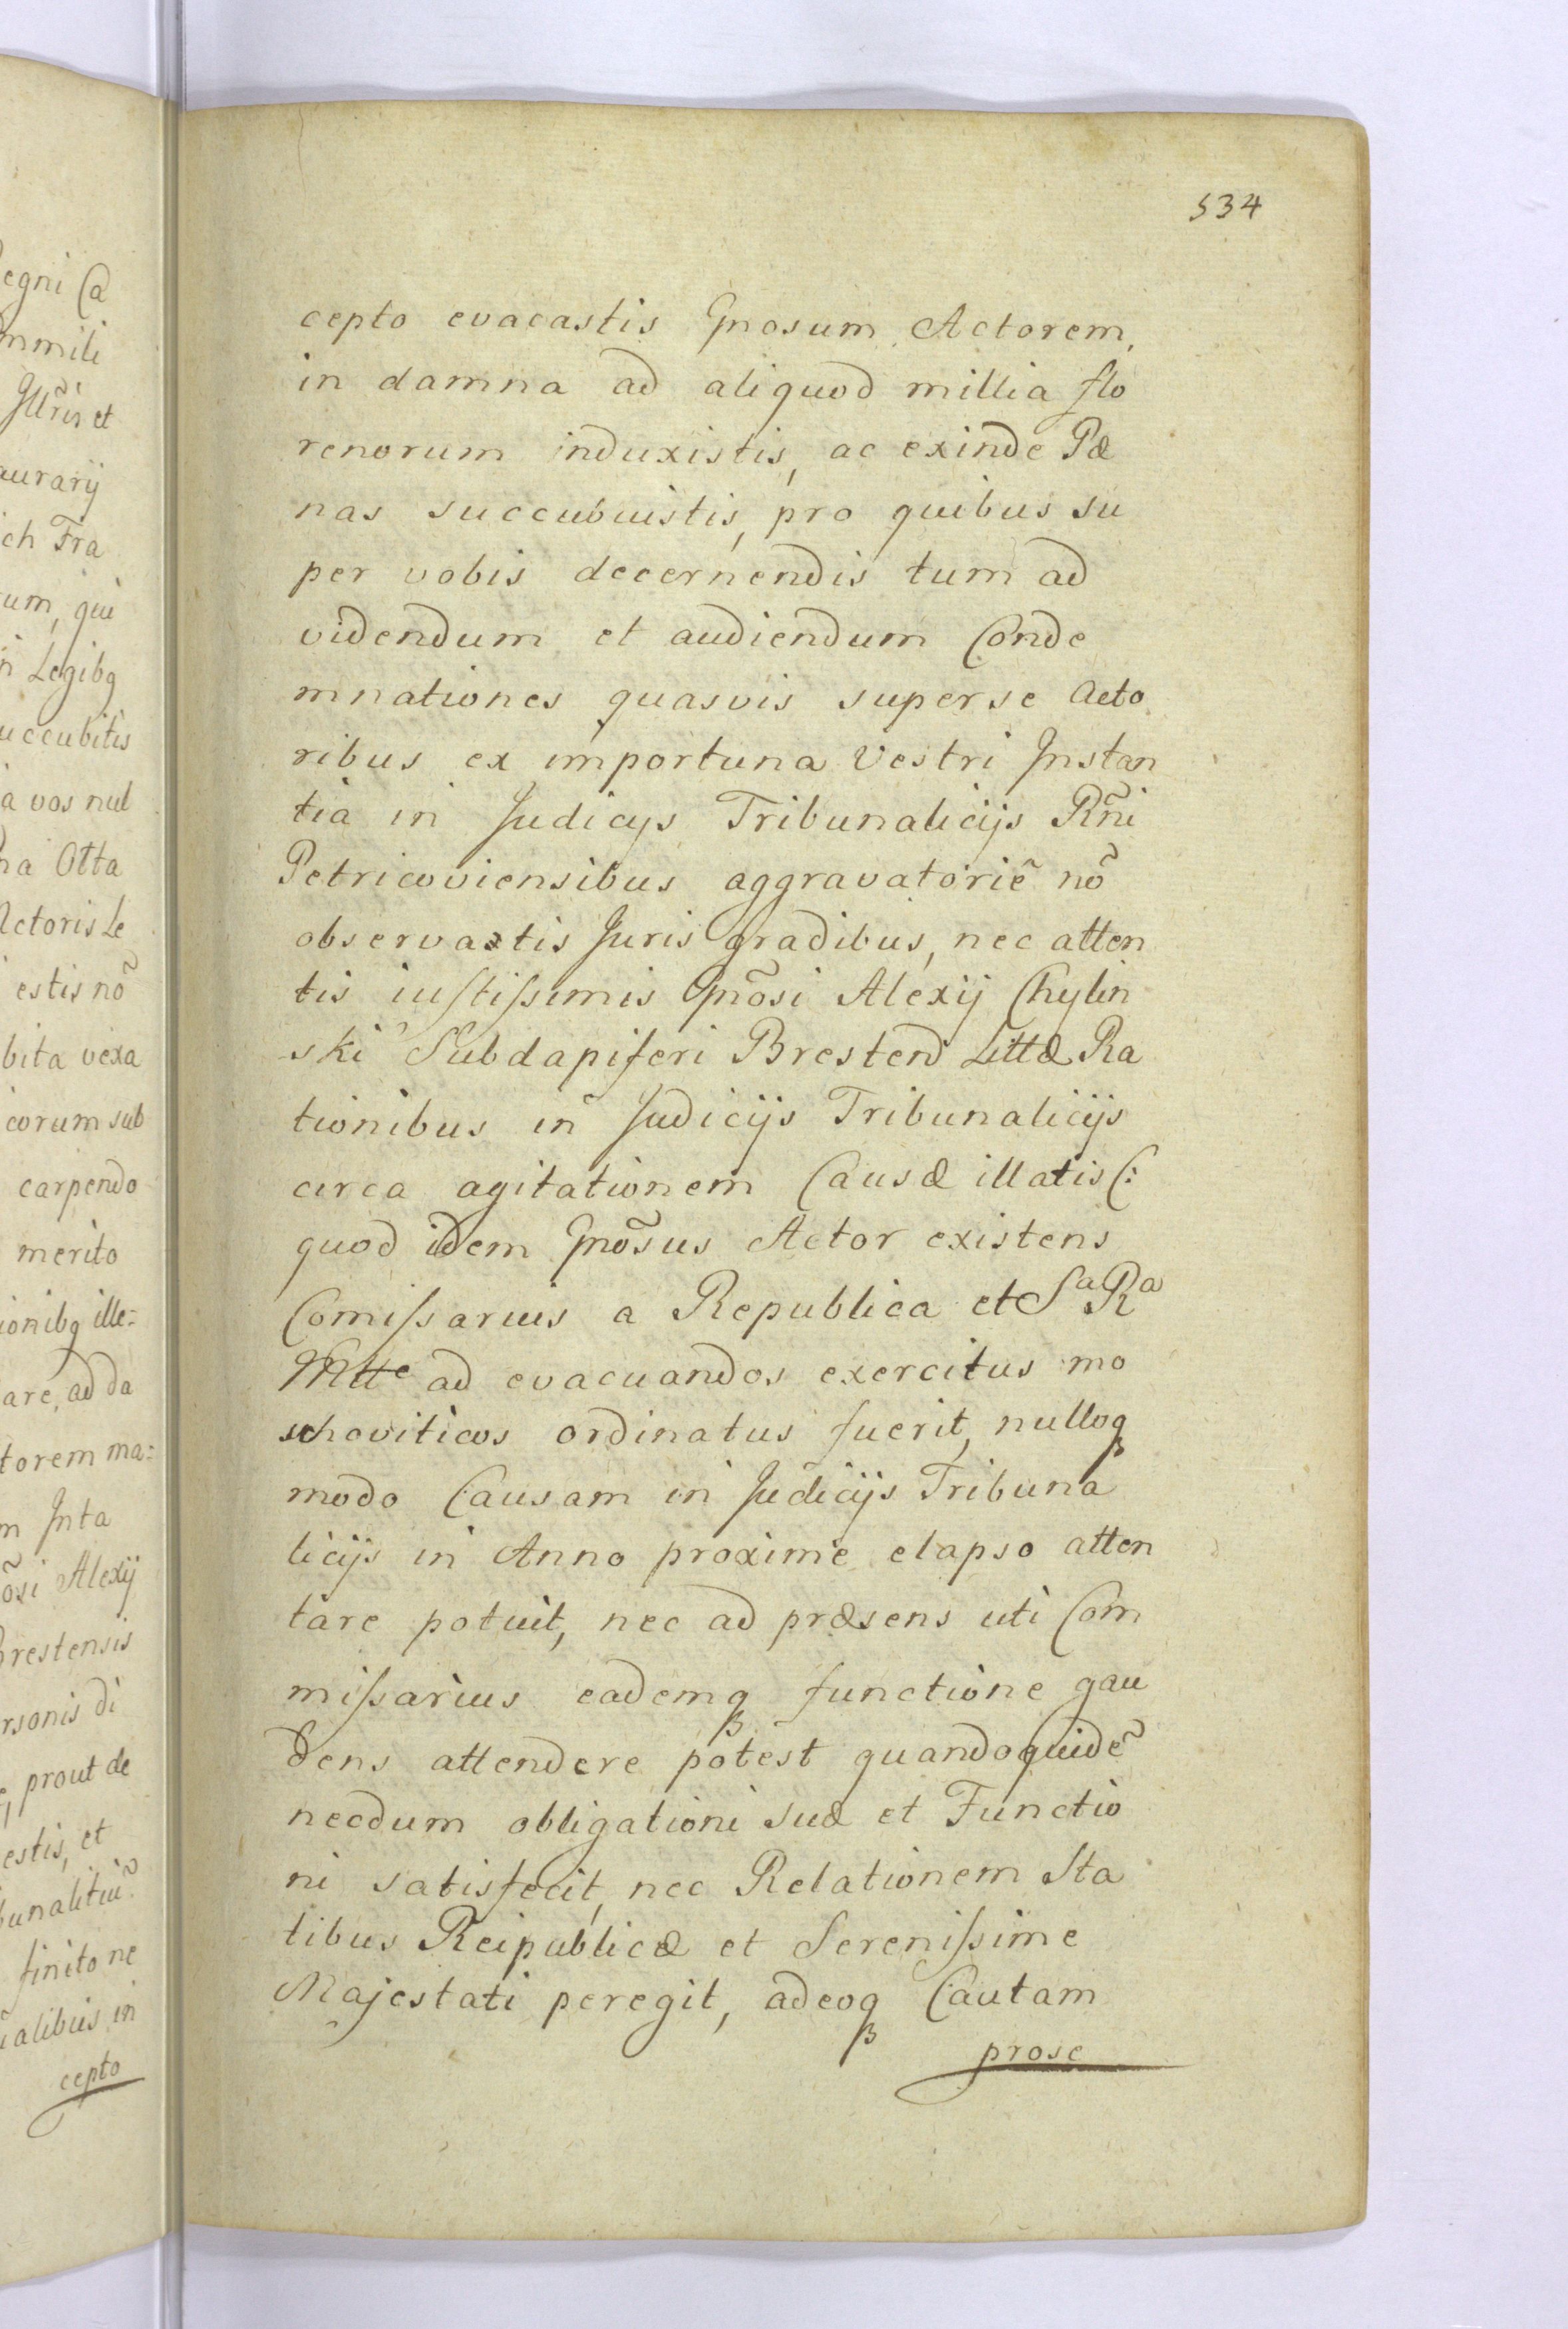 egni Ca
mmili
Jllr̃is et
aurarij
ich Fra
um, qui
n Legibq
uccubitis
a vos nul
na Otta
Actoris Le
estis nõ
bita vexa
icorum sub
carpendo
merito
ionibq ille=
are, ad da
torem ma=
m Jnta
õsi Alexij
Brestensis
rsonis di
e, prout de
estis, et
bunalitiũ
finito ne
ialibus in
cepto
534
cepto evacastis Gnosum Actorem,
in damna ad aliquod millia flo
renorum induxistis, ac exinde Pæ
nas succubuistis, pro quibus su
per vobis decernendis tum ad
videndum et audiendum Conde
mnationes quasvis super se Acto
ribus ex importuna Vestri Jnstan
tia in Judicijs Tribunalicijs Rñi
Petricoviensibus aggravatoriẽ nõ
observatis Juris gradibus, nec atten
tis iustissimis Gnõsi Alexij Chylin
ski Subdapiferi Brestend Littæ Ra
tionibus in Judicijs Tribunalicijs
circa agitationem Causæ illatis (:
quod idem Gnõsus Actor existens
Comissarius a Republica et Sa Ra
Mtte ad evacuandos exercitus mo
schoviticos ordinatus fuerit, nulloq
modo Causam in Judicijs Tribuna
licijs in Anno proxime elapso atten
tare potuit, nec ad præsens uti Com
missarius eademq functione gau
dens attendere potest quandoquidẽ
necdum obligationi suæ et Functio
ni satisfecit, nec Relationem Sta
tibus Reipublicæ et Serenissime
Majestati peregit, adeoq Cautam
prose